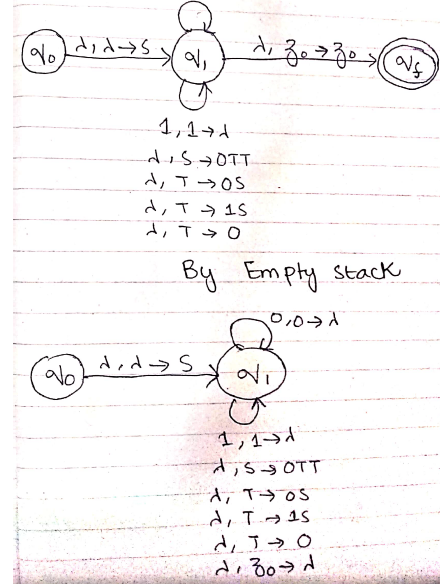 q0 λ, λ→S q1 λ, z0→z0 qf
1, 1→λ
λ, S→0TT
λ, T→0S
λ, T→1S
λ, T→0
By Empty stack
0,0→λ
q0 λ, λ→S q1
1, 1→λ
λ, S→0TT
λ, T→0S
λ, T→1S
λ, T→0
λ, z0→λ